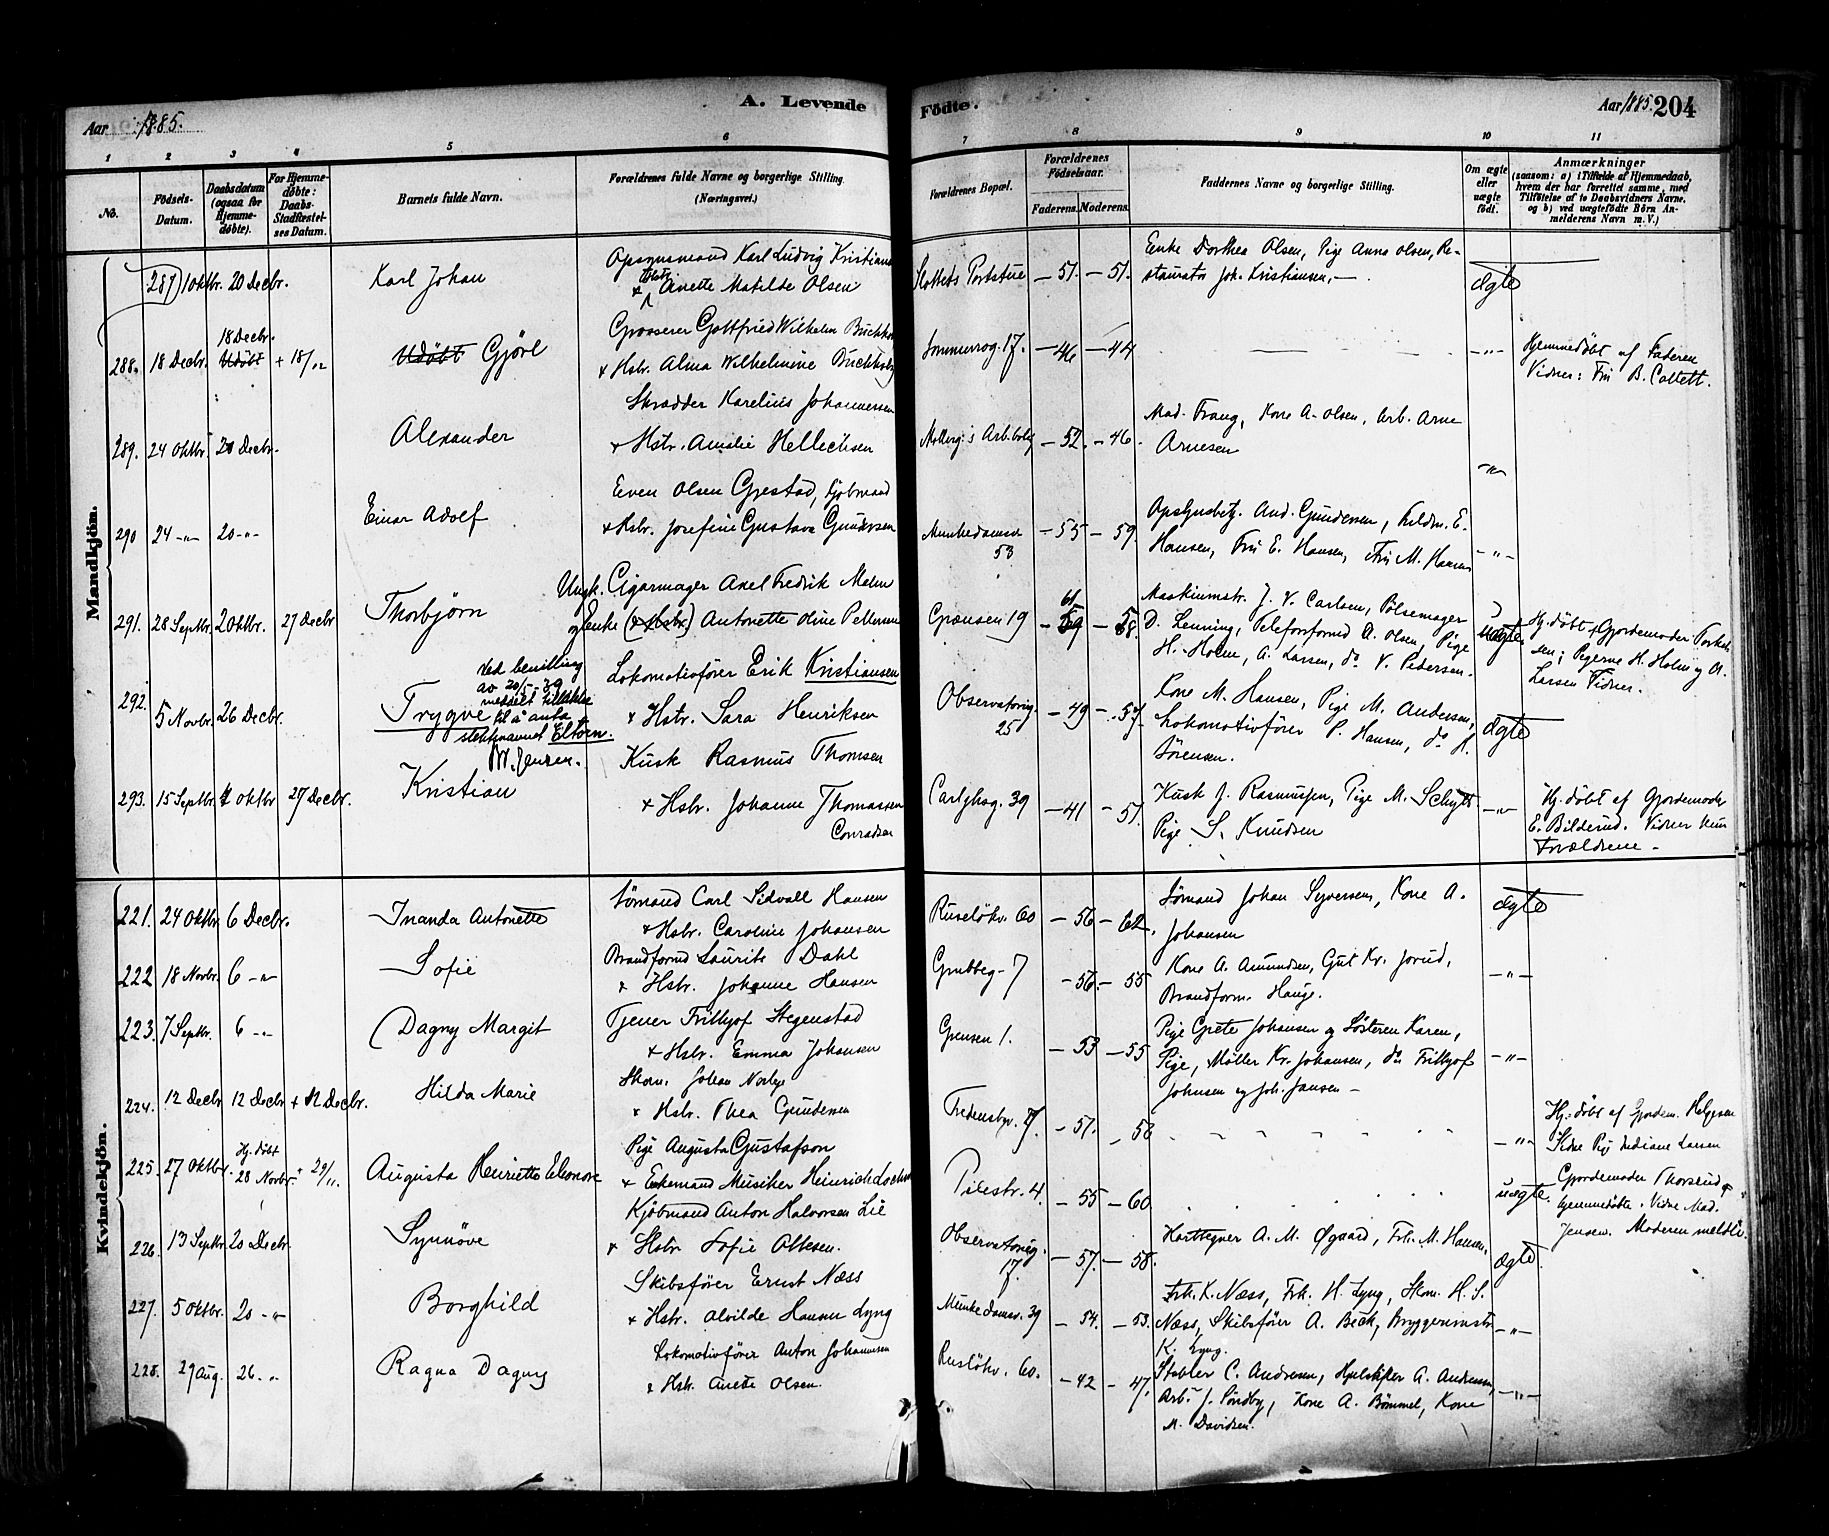 A. Levende Fødte.
Aar 1885.
Aar 1885. 204
1 2 3 4 5 6 7 8 9 10 11
No.
Födsels-Datum.
Daabsdatum (ogsaa for Hjemme-döbte).
For Hjemme-döbte: Daabs-Stadfæstel-ses Datum.
Barnets fulde Navn.
Forældrenes fulde Navne og borgerlige Stilling (Næringsvei.)
Forældrenes Bopæl.
Forældrenes Födselsaar.
Faderens. Moderens.
Faddernes Navne og borgerlige Stilling.
Om ægte eller uægte født.
Anmærkninger
(saasom: a) i Tilfælde af Hjemmedaab, hvem der har forrettet samme, med Tilföielse af to Daabsvidners Navne, og b) ved uægtefödte Börn An-melderens Navn m. V.)
Mandkjön.
287 1 Oktbr. 20 Decbr. Karl Johan
Opsynsmand Karl Ludvig Kristians
& Hstr. Anette Matilde Olsen
Slottets Portstue — 51. — 51.
Enke Dorthea Olsen, Pige Anna Olsen, Re-
stauratør Joh. Kristiansen, —
ægte
288. 18 Decbr. 18 Decbr. Udöbt + 18/12 Udöbt Gjörl
Grosserer Gottfried Wilhelm Buchhol
& Hstr. Alma Wilhelmine Buchholz
Sommerrog. 17. — 46 — 44
— " —
Hjemmedöbt af Faderen
Vidner: Fru B. Collett.
289. 24 Oktbr. 20 Decbr. Alexander
Skrædder Karelius Johannessen
& Hstr. Amalie Hellechsen
Møllerg.s Arb.bolig — 52. — 46.
Mad. Trang, Kone A. Olsen, Arb. Arne
Arnesen
— " —
290 24 — " — 20 — " — Einar Adolf
Even Olsen Grestad, Kjöbmand
& Hstr. Josefine Gustava Gundersen
Munkedamsv. 53 — 55 — 59.
Opsynsbetj. And. Gundersen, Fuldm. E.
Hansen, Fru E. Hansen, Fru M. Hansen
— " —
291. 28 Septbr. 2 Oktbr. 27 Decbr Thorbjörn
Ungk. Cigarmager Axel Fredrik Malm
og Enke (& Hstr.) Antonette Oline Pettersen
Grænsen 19 — 61 59 — 58.
Maskinmstr. J. V. Carlsen, Pølsemager
D. Lenning, Telefonformd A. Olsen, Pige
H. Holm, A. Larsen, do V. Pedersen.
uægte
Hj. döbt af Gjordemoder Torkel-
sen; Pigerne H. Holm og A.
Larsen Vidner.
292. 5 Novbr. 26 Decbr. Trygve
Ved bevilling
av 20/- -39
meddelt tillatelse
til å anta
slektsnavnet Eltorn.
M. Jensen.
Lokomotivförer Erik Kristiansen
& Hstr. Sara Henriksen
Observatorieg. 25 — 49 — 57.
Kone M. Hansen, Pige M. Andersen,
Lokomotivförer P. Hansen, do H.
Sörensen.
ægte
293. 15 Septbr. 4 Oktbr 27 Decbr. Kristian
Kusk Rasmus Thomsen
& Hstr. Johanne Thomassen
Conradsen
Carlybsg. 39 — 41 — 51.
Kusk J. Rasmussen, Pige M. Schytt
Pige S. Knudsen
— " —
Hj. döbt af Gjordemoder
E. Bilderud. Vidner kun
Forældrene. —
Kvindekjön.
221. 24 Oktbr. 6 Decbr. Inanda Antonette
Sömand Carl Sidvall Hansen
& Hstr. Caroline Johansen
Ruselökv. 60 — 56 — 62.
Sömand Johan Syversen, Kone A.
Johansen
ægte
222 18 Novbr. 6 — " — Sofie
Brandformd Laurits Dahl
& Hstr. Johanne Hansen
Grubbeg. 7 — 56. — 55
Kone A. Amundsen, Gut Kr. Jorud,
Brandform. Hauge.
— " —
223. 7 Septbr. 6 — " — Dagny Margit
Tjener Frithjof Stegenstad
& Hstr. Emma Johansen
Grensen 1. — 53 — 55
Pige Grete Johansen og Søsteren Karen,
Pige, Møller Kr. Johansen, do Frithjof
Johnsen og Joh. Jansen —
— " —
224. 12 Decbr 12 Decbr + 12 Decbr. Hilda Marie
Skom. Johan Norbye
& Hstr. Thea Gundersen
Fredensbv. 7. — 57. — 56
— " —
Hj. döbt af Gjordem. Helgesen
Vidne Pige Indiane Larsen
225. 27 Oktbr. Hj. döbt 28 Novbr. 29/11. Augusta Henriette Eleonore
Pige Augusta Gustafson
& Enkemand Musiker Heinrich
Pilestr. 4. — 55 — 60
uægte.
Gjordemoder Thorsrud
hjemmedöbte. Vidne Mad.
Jensen. Moderen meldte.
226. 13 Septbr 20 Decbr. Synnöve
Kjöbmand Anton Halvorsen Lie
& Hstr. Sofie Ottesen.
Observatorieg. 17. — 57. — 58.
Karttegner A. M. Øgaard, Frk. M. Hansen.
ægte
227. 5 Oktbr. 20 — " — Borghild
Skibsförer Ernst Næss
& Hstr. Alvilde Hanna Lyng
Munkedamsv. 39 — 54. — 53.
Frk. K. Næss, Frk. H. Lyng, Skom. H. S.
Næss, Skibsförer A. Beck, Bryggerimstr
K. Lyng.
— " —
228. 29 Aug. 26. — " — Ragna Dagny
Lokomotivförer Anton Johannesen
& Hstr. Anette Olsen.
Ruslökv. 60. — 42 — 47.
Stabler C. Andresen, Hjulskifter A. Andresen,
Arb. J. Sondby, Kone A. Bömmel, Kone
M. Davidsen.
— " —